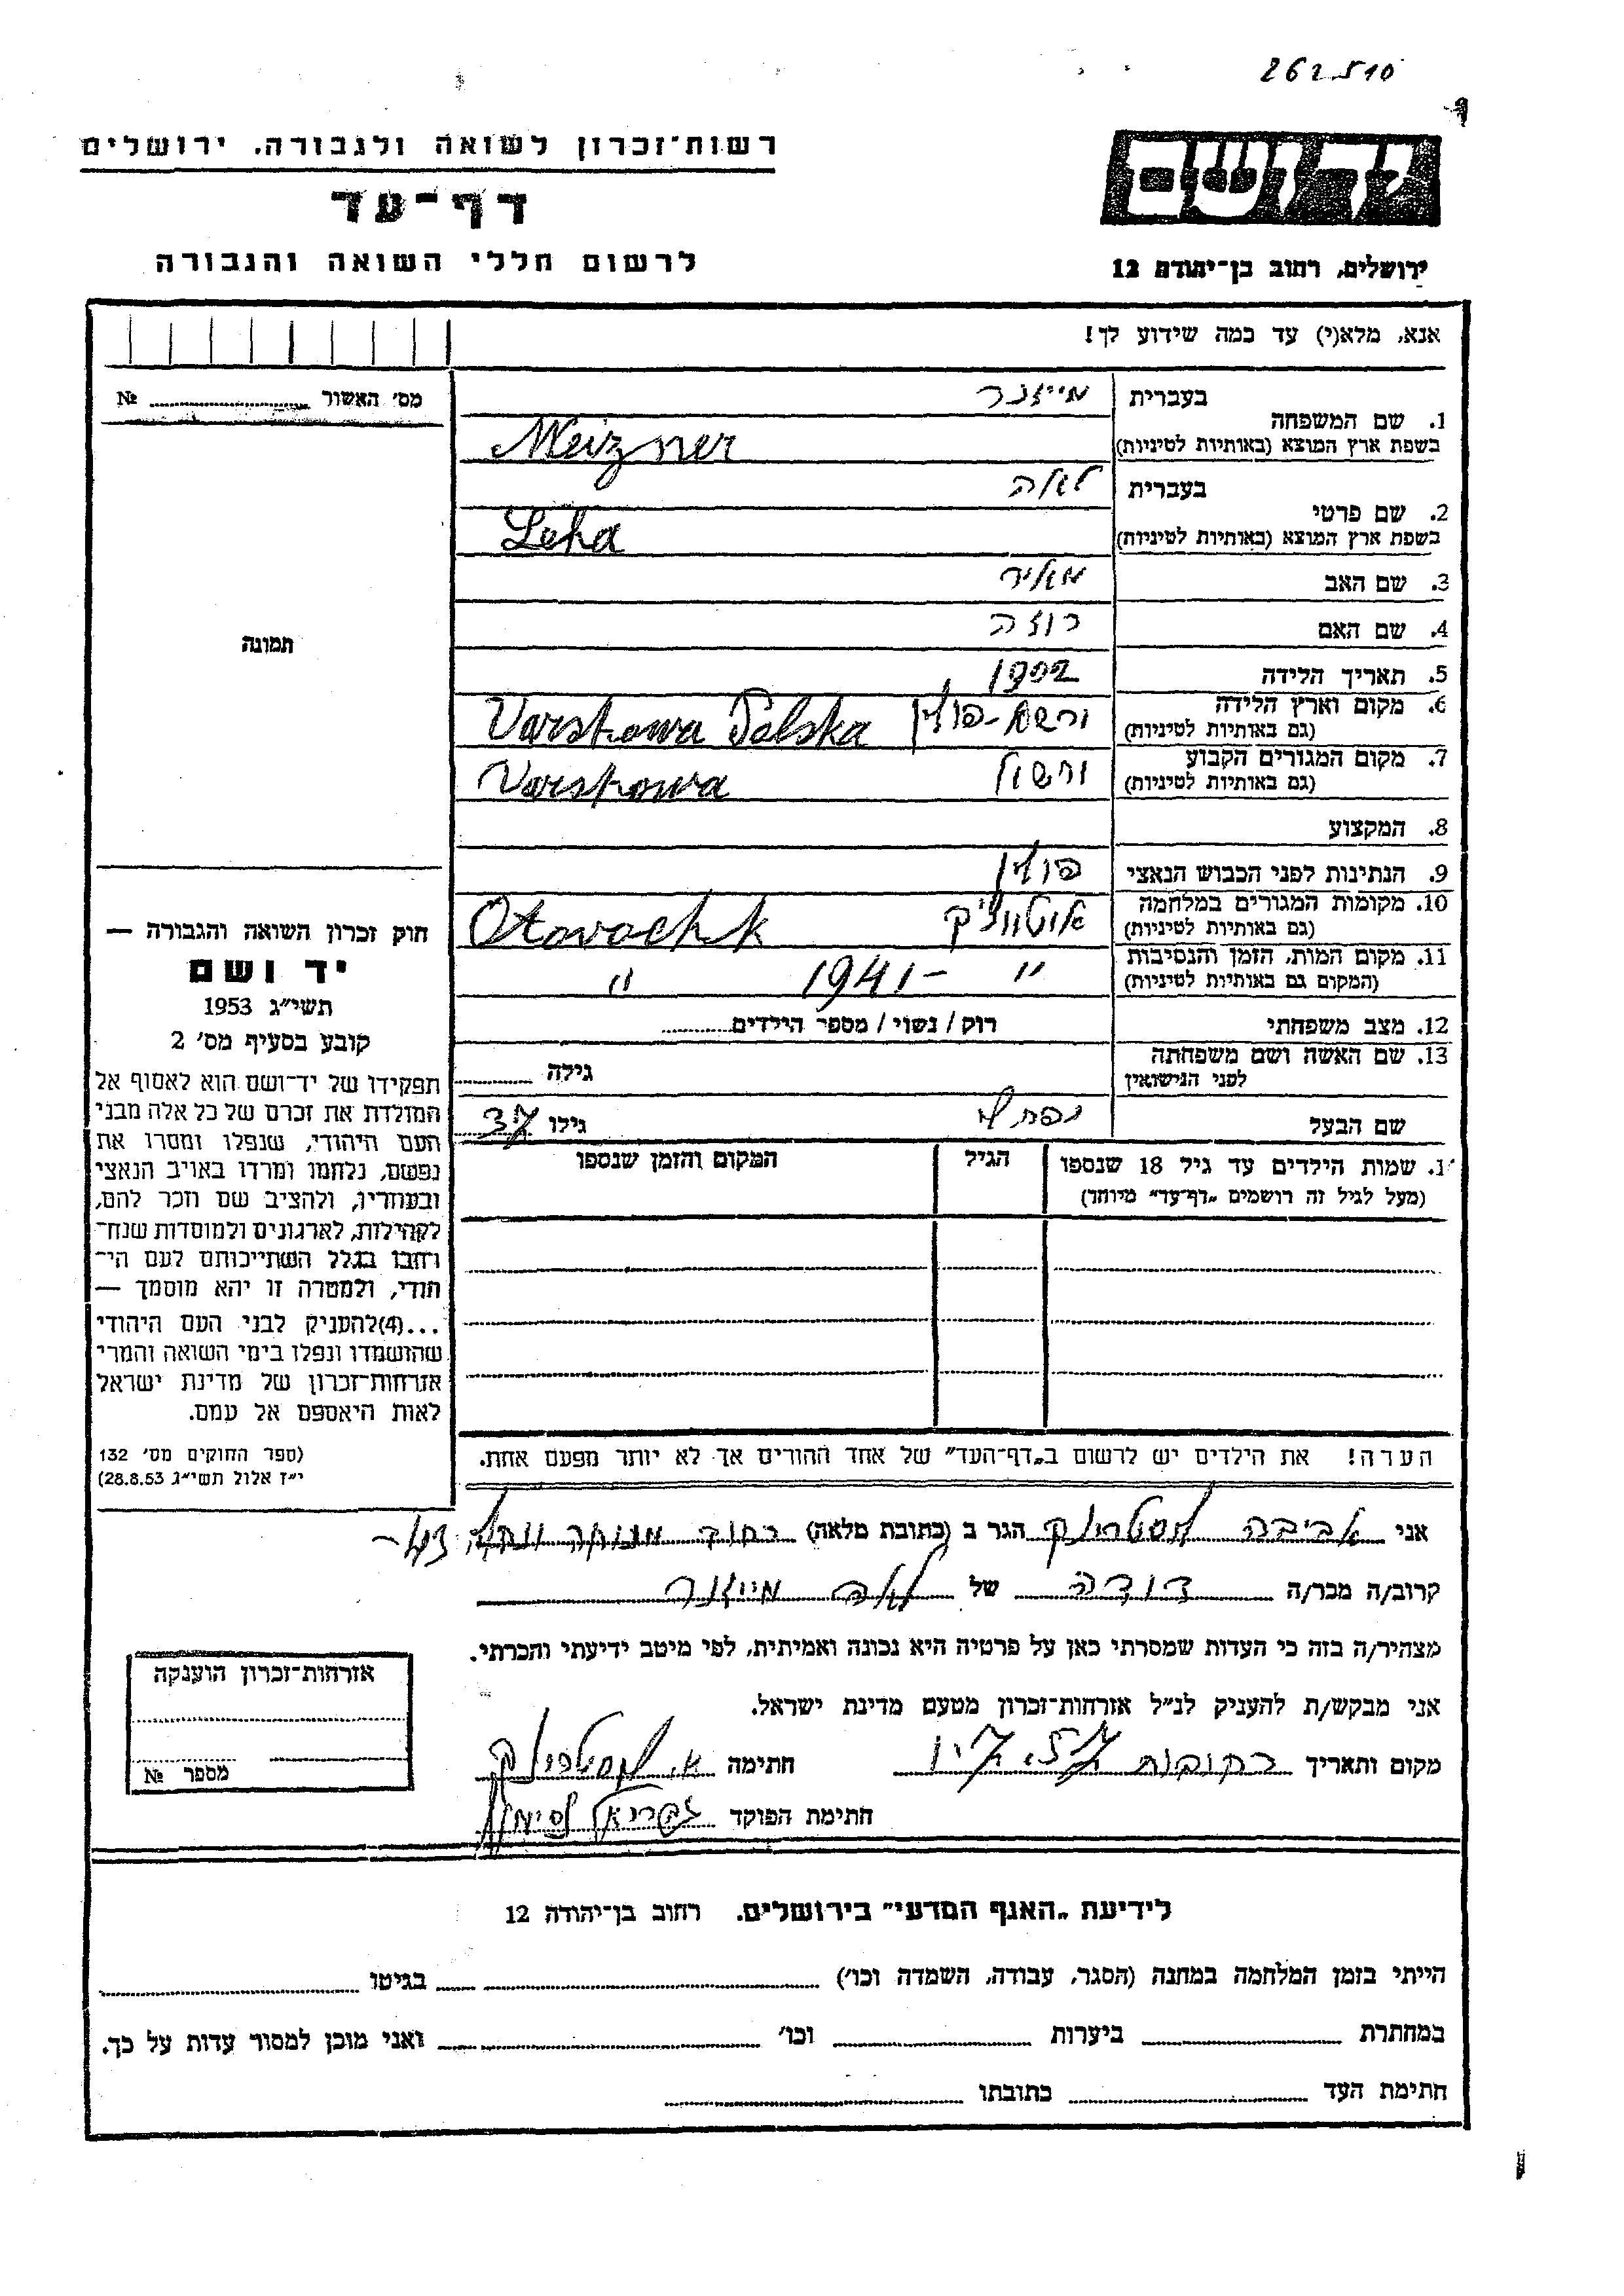 262510
רשות־זכרון לשואה ולגבורה. ירושלים
דף־עד
לרשום חללי השואה והגבורה
יד ושם
ירושלים, רחוב בן־יהודה 12
אנא, מלא(י) עד כמה שידוע לך!
מס׳ האשור № 
תמונה
חוק זכרון השואה והגבורה —
יד ושם
תשי״ג 1953
קובע בסעיף מס׳ 2
תפקידו של יד־ושם הוא לאסוף אל
המולדת את זכרם של כל אלה מבני
העם היהודי, שנפלו ומסרו את
נפשם, נלחמו ומרדו באויב הנאצי
ובעוזריו, ולהציב שם וזכר להם,
לקהילות, לארגונים ולמוסדות שנח־
רחבו בגלל השתייכותם לעם הי־
הודי, ולמטרה זו יהא מוסמך —
...(4)להעניק לבני העם היהודי
שהושמדו ונפלו בימי השואה והמרי
אזרחות־זכרון של מדינת ישראל
לאות היאספם אל עמם.
(ספר החוקים מס׳ 132
י״ז אלול תשי״ג 28.8.53)
1. שם המשפחה
בעברית מייזנר
בשפת ארץ המוצא (באותיות לטיניות) Meizner
2. שם פרטי
בעברית לאה
בשפת ארץ המוצא (באותיות לטיניות) Leha
3. שם האב מאיר
4. שם האם רוזה
5. תאריך הלידה 1902
6. מקום וארץ הלידה
(גם באותיות לטיניות) ורשה-פולין Varshowa Polska
7. מקום המגורים הקבוע
(גם באותיות לטיניות) Varshowa
8. המקצוע
9. הנתינות לפני הכבוש הנאצי פולין
10. מקומות המגורים במלחמה
(גם באותיות לטיניות) אוטווצ׳ק Otwochk
11. מקום המות, הזמן והנסיבות
(המקום גם באותיות לטיניות) " 1941- "
12. מצב משפחתי רוק / נשוי / מספר הילדים
13. שם האשה ושם משפחתה
לפני הנישואין גילה
שם הבעל נפתלי גילו 37
1. שמות הילדים עד גיל 18 שנספו
(מעל לגיל זה רושמים „דף־עד״ מיוחד)
הגיל
המקום והזמן שנספו
הערה! את הילדים יש לרשום ב„דף־העד״ של אחד ההורים אך לא יותר מפעם אחת.
אני אביבה הגר ב (כתובת מלאה) רחוב 43-
קרוב/ה מכר/ה דודה של לאה מייזנר
מצהיר/ה בזה כי העדות שמסרתי כאן על פרטיה היא נכונה ואמיתית, לפי מיטב ידיעתי והכרתי.
אני מבקש/ת להעניק לנ״ל אזרחות־זכרון מטעם מדינת ישראל.
מקום ותאריך רחובות חתימה א.
חתימת הפוקד גבריאל
אזרחות־זכרון הוענקה
מספר №
לידיעת „האגף המדעי״ בירושלים. רחוב בן־יהודה 12
הייתי בזמן המלחמה במחנה (הסגר, עבודה, השמדה וכו׳) בגיטו
במחתרת ביערות וכו׳ ואני מוכן למסור עדות על כך.
חתימת העד כתובתו